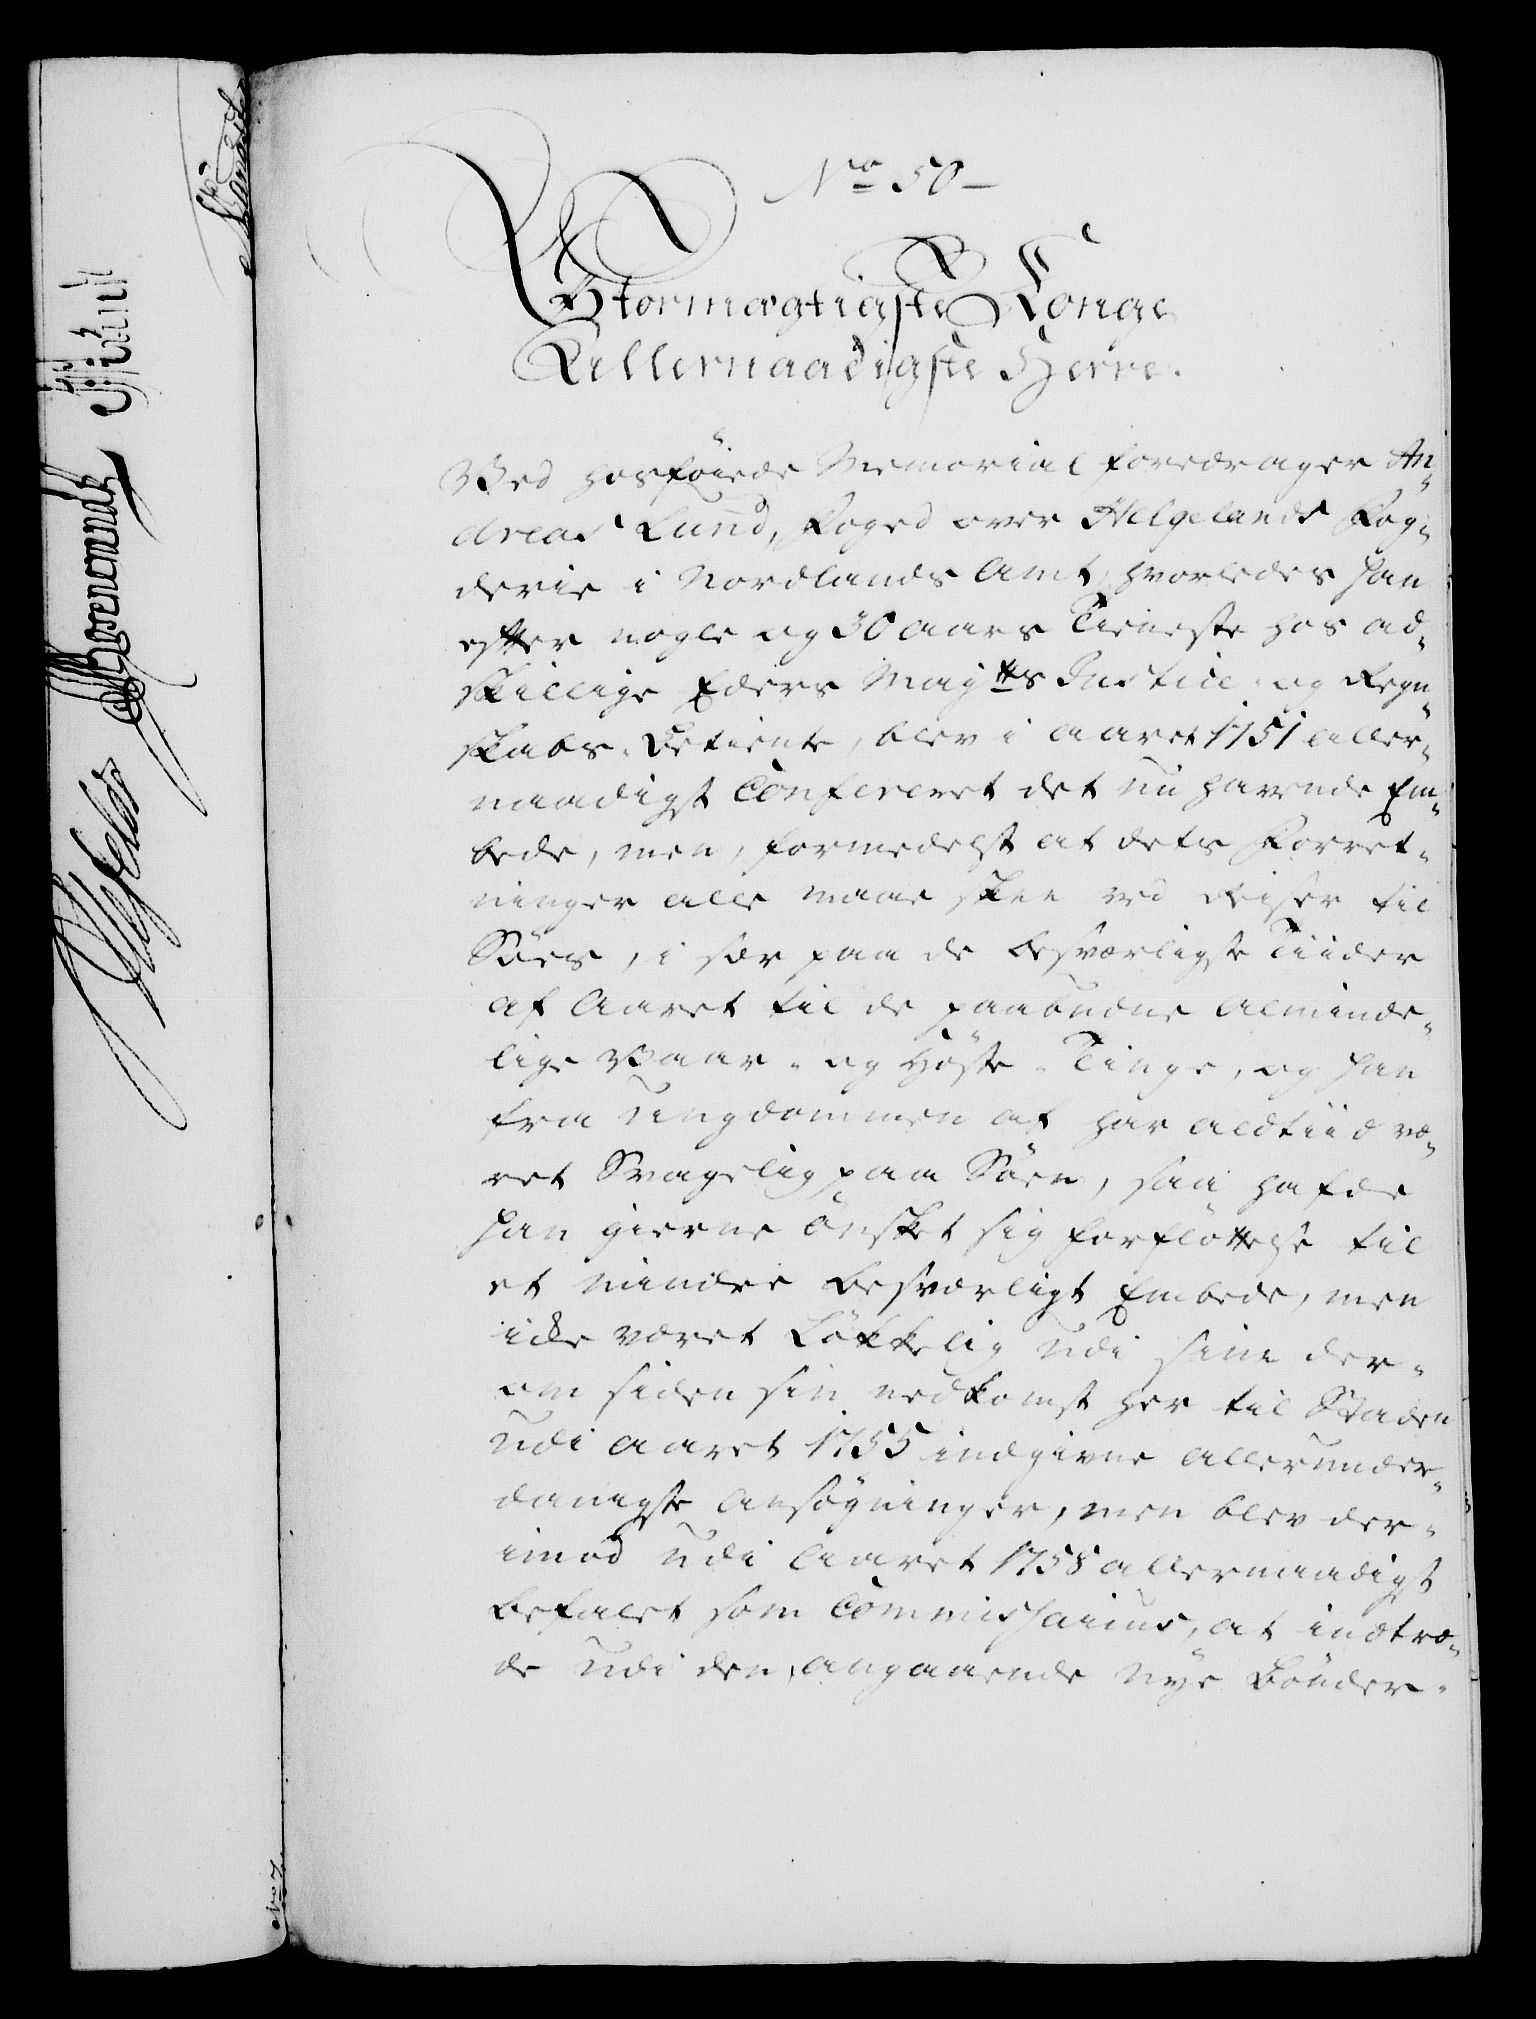 No 50
Stormægtigste Konge
Allernaadigste Herre.
Ved hosføiede Memorial foredrager An-
dreas Lund, Foged over Helgelands Fog-
derie i Nordlands Amt, hvorledes han
efter nogle og 30 aars Tieneste hos ad-
skillige Eders Maytts Justice- og Regn-
skabs-Betiente, blev i aaret 1751 aller-
naadigst Confereret det nu havende Em-
bede, men, formedelst at dets Forret-
ninger alle maae skee ved Reiser til
Søes, i sær paa de besværligste Tiider
af Aaret til de paabudne almindе-
lige Vaar- og Høste-Tinge, og han
fra Ungdommen af har altiid væ-
ret Svagelig paa Søen, saa hafde
han gierne ønsket sig forfløttelse til
et mindre besværligt Embede, men
icke været Løkkelig udi sine der-
om siden sin nedkomst her til Staden
udi aaret 1755 indgivne allerunder-
danigste Ansøgninger, men blev der-
imod udi Aaret 1758 allernaadigst
befalet som Commissarius, at indtræ-
de udi den, angaaende nye Bønder-
Rosenvinds